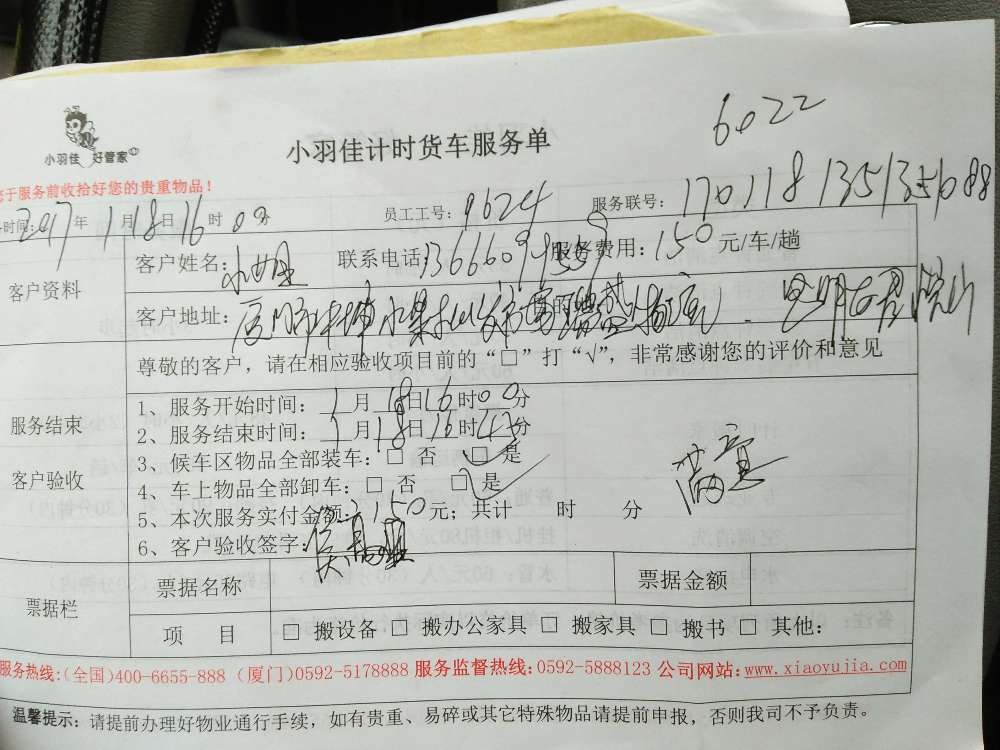 6022
小羽佳 好管家
小羽佳计时货车服务单
于服务前收拾好您的贵重物品！
时间：2017年1月18日16时00分 员工工号：9624 服务联号：170118135135088
客户资料
客户姓名：小姐 联系电话：服务费用：150元/车/趟
客户地址：
尊敬的客户，请在相应验收项目前的“□”打“√”，非常感谢您的评价和意见
服务结束
客户验收
1、服务开始时间：1月18日16时00分
2、服务结束时间：1月18日16时43分
3、候车区物品全部装车：□ 否 □ 是
4、车上物品全部卸车：□ 否 □ 是
满意
5、本次服务实付金额：150元；共计 时 分
6、客户验收签字：
票据栏
票据名称 票据金额
项 目 □ 搬设备 □ 搬办公家具 □ 搬家具 □ 搬书 □ 其他：
服务热线：(全国)400-6655-888 (厦门)0592-5178888 服务监督热线：0592-5888123 公司网站：www.xiaoyujia.com
温馨提示：请提前办理好物业通行手续，如有贵重、易碎或其它特殊物品请提前申报，否则我司不予负责。